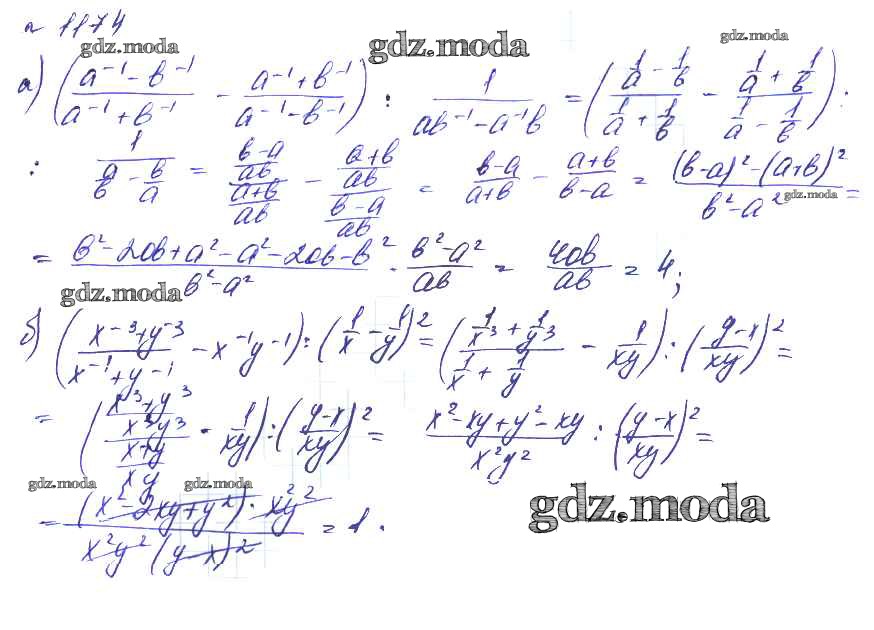 № 1174
gdz.moda gdz.moda gdz.moda
а) ((a⁻¹ − b⁻¹)/(a⁻¹ + b⁻¹) − (a⁻¹ + b⁻¹)/(a⁻¹ − b⁻¹)) : 1/(ab⁻¹ − a⁻¹b) = ((1/a − 1/b)/(1/a + 1/b) − (1/a + 1/b)/(1/a − 1/b)) :
: 1/(a/b − b/a) = ((b−a)/ab)/((a+b)/ab) − ((a+b)/ab)/((b−a)/ab) = (b−a)/(a+b) − (a+b)/(b−a) = ((b−a)² − (a+b)²)/(b² − a²) =
gdz.moda
= (b² − 2ab + a² − a² − 2ab − b²)/(b² − a²) · (b² − a²)/ab = 4ab/ab = 4;
gdz.moda
б) ((x⁻³ + y⁻³)/(x⁻¹ + y⁻¹) − x⁻¹y⁻¹) : (1/x − 1/y)² = ((1/x³ + 1/y³)/(1/x + 1/y) − 1/xy) : ((y−x)/xy)² =
= (((x³ + y³)/x³y³)/((x+y)/xy) − 1/xy) : ((y−x)/xy)² = (x² − xy + y² − xy)/x²y² : ((y−x)/xy)² =
gdz.moda gdz.moda gdz.moda
= ((x² − 2xy + y²) · x²y²)/(x²y²(y − x)²) = 1.